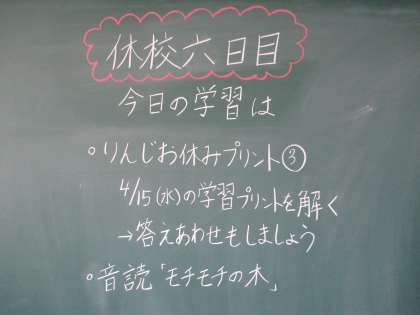 休校六日目
今日の学習は
○りんじお休みプリント③
4/15(水)の学習プリントを解く
→答えあわせもしましょう
○音読「モチモチの木」